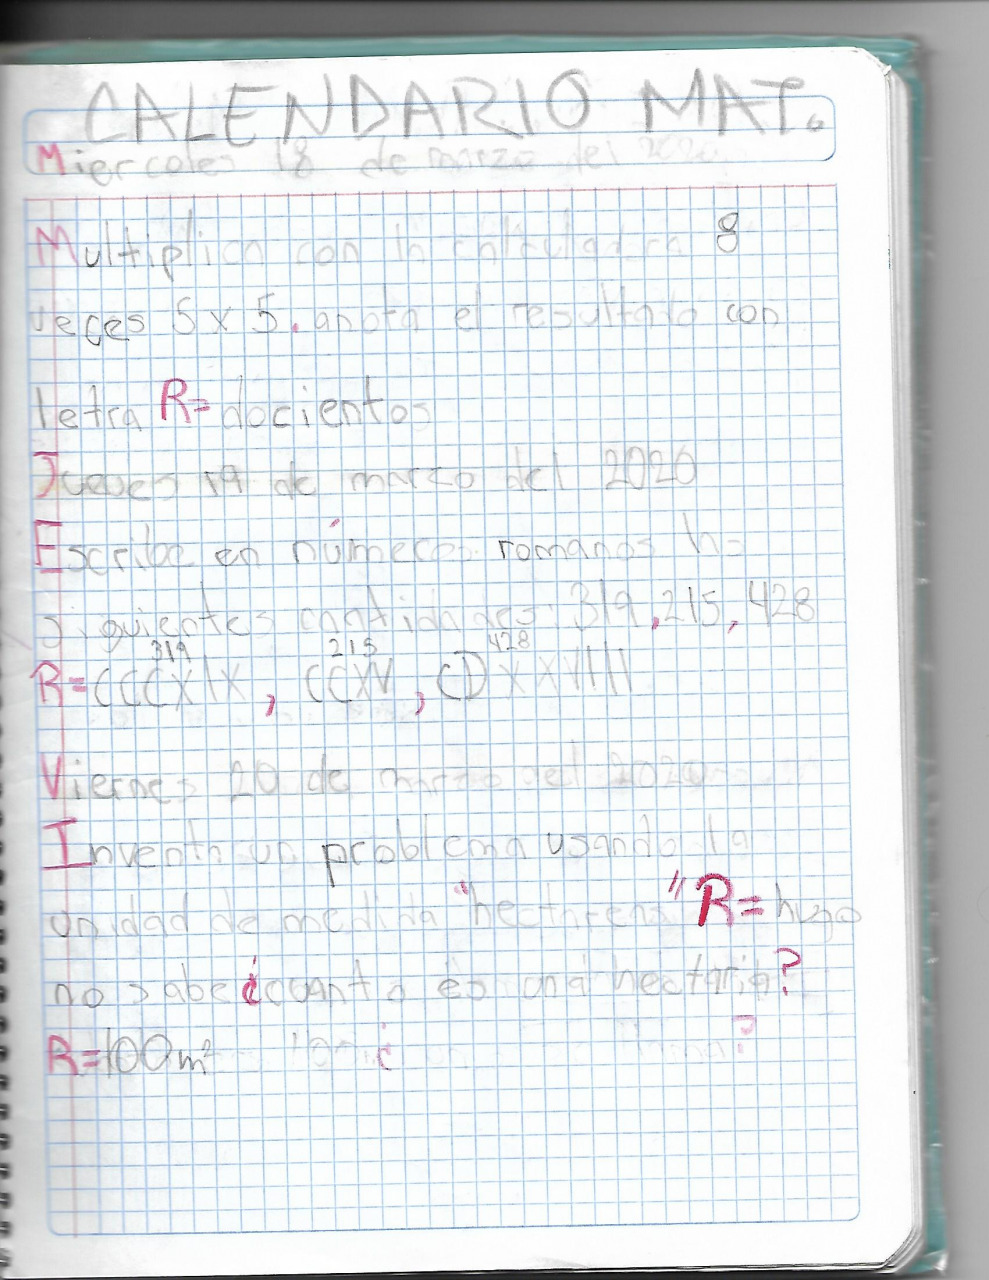 CALENDARIO MAT.
Miercoles 18 de marzo del 2020
Multiplica con la calculadora 8
veces 5x5. anota el resultado con
letra R= docientos
Jueves 19 de marzo del 2020
Escribe en números romanos
siguientes cantidades: 319, 215, 428
319 215 428
R= CCCXIX, CCXV, CDXXVIIII
Viernes 20 de marzo del 2020
Inventa un problema usando la
unidad de medida " " R= hugo
no sabe ¿cuanto es una hectaria?
R=100m² ¿ ?